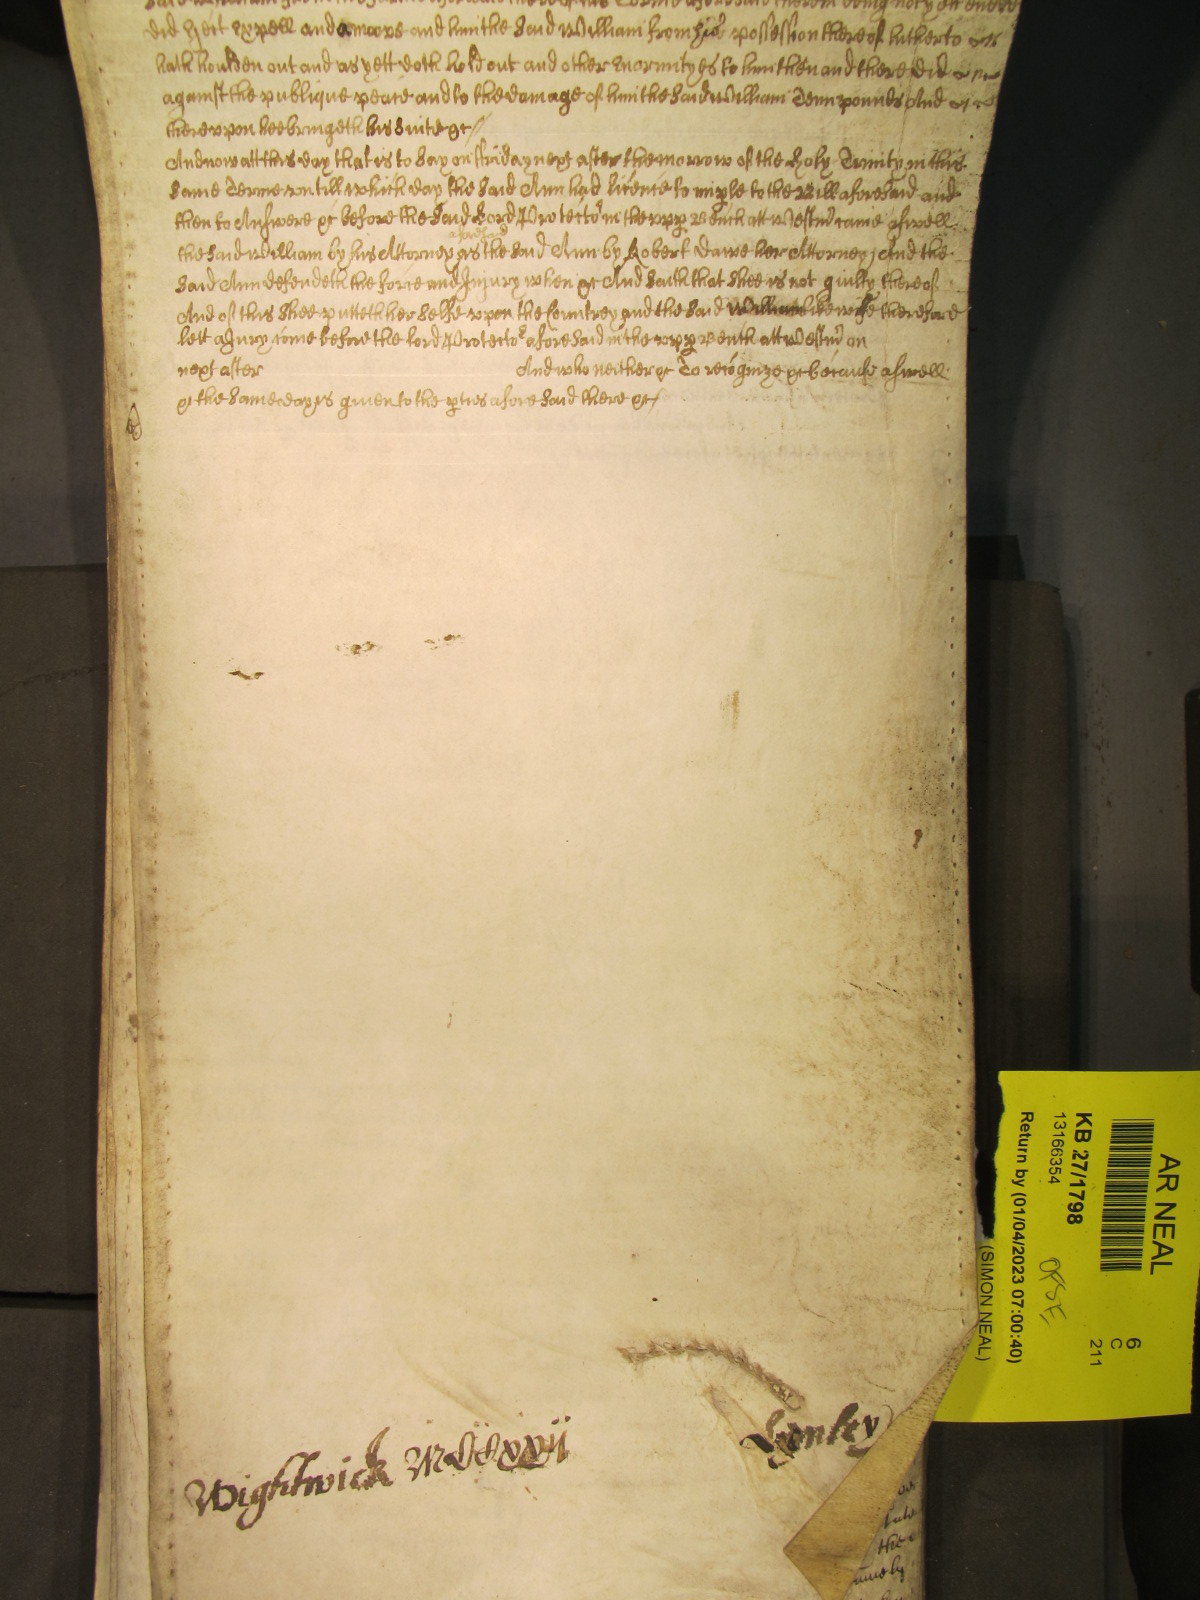 did Eject expell and amoove and him the said William from his possession thereof hitherto
hath houlden out and as yett doth hold out and other Enormityes to him then and there did
against the publique peace and to the damage of him the said William Tenn pounds And
thereuppon hee bringeth his suite &c
And now att this day that is to say on ffriday next after the morrow of the holy Trinity in this
same Terme untill which day the said Ann had licence to imple to the Bill aforesaid and
then to Answere &c before the said Lord Protector in the upp Bench att Westmr came aswell
the said William by his Attorney aforesaid as the said Ann by Robert Dawe her Attorney And the
said Ann defendeth the force and Injury when &c And saith that shee is not guilty thereof
And of this shee putteth her selfe uppon the Countrey and the said William likewise therefore
lett a Jury come before the lord Protector aforesaid in the upp Bench att Westmr on
next after And who neither &c To recognize &c because aswell
&c the same day is given to the pties aforesaid there &c
Wightwick
Henley
AR NEAL
KB 27/1798
13166354
Return by (01/04/2023 07:00:40)
(SIMON NEAL)
6
C
211